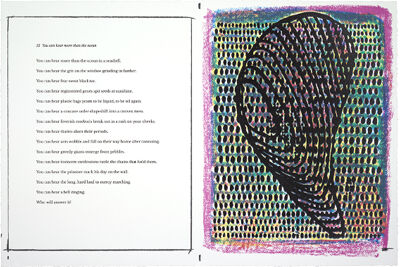 You can hear more than the ocean
You can hear more than the ocean in a seashell.
You can hear the grit on the window grinding in harder.
You can hear fear sweat blackout.
You can hear regimented gears spit seeds at sunshine.
You can hear plastic bags yearn to be liquid, to be oil again.
You can hear a concave order shape-shift into a convex mess.
You can hear feverish rondos break out in a rash on your cheeks.
You can hear thieves alarm their periods.
You can hear sots wobble and fall on their way home after carousing.
You can hear greedy giants overage frozen pebbles.
You can hear tomorrow confessions rattle the chains that hold them.
You can hear the prisoner mark his day on the wall.
You can hear the long, hard land so mercy marching.
You can hear a bell ringing.
Who will answer it?